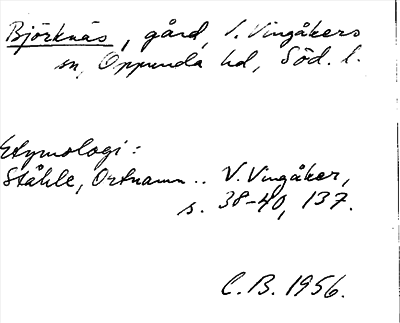 Björknäs, gård, V. Vingåkers
sn, Oppunda hd, Söd. l.
Etymologi:
Ståhle, Ortnamn.. V. Vingåker,
s. 38-40, 137.
C.B. 1956.